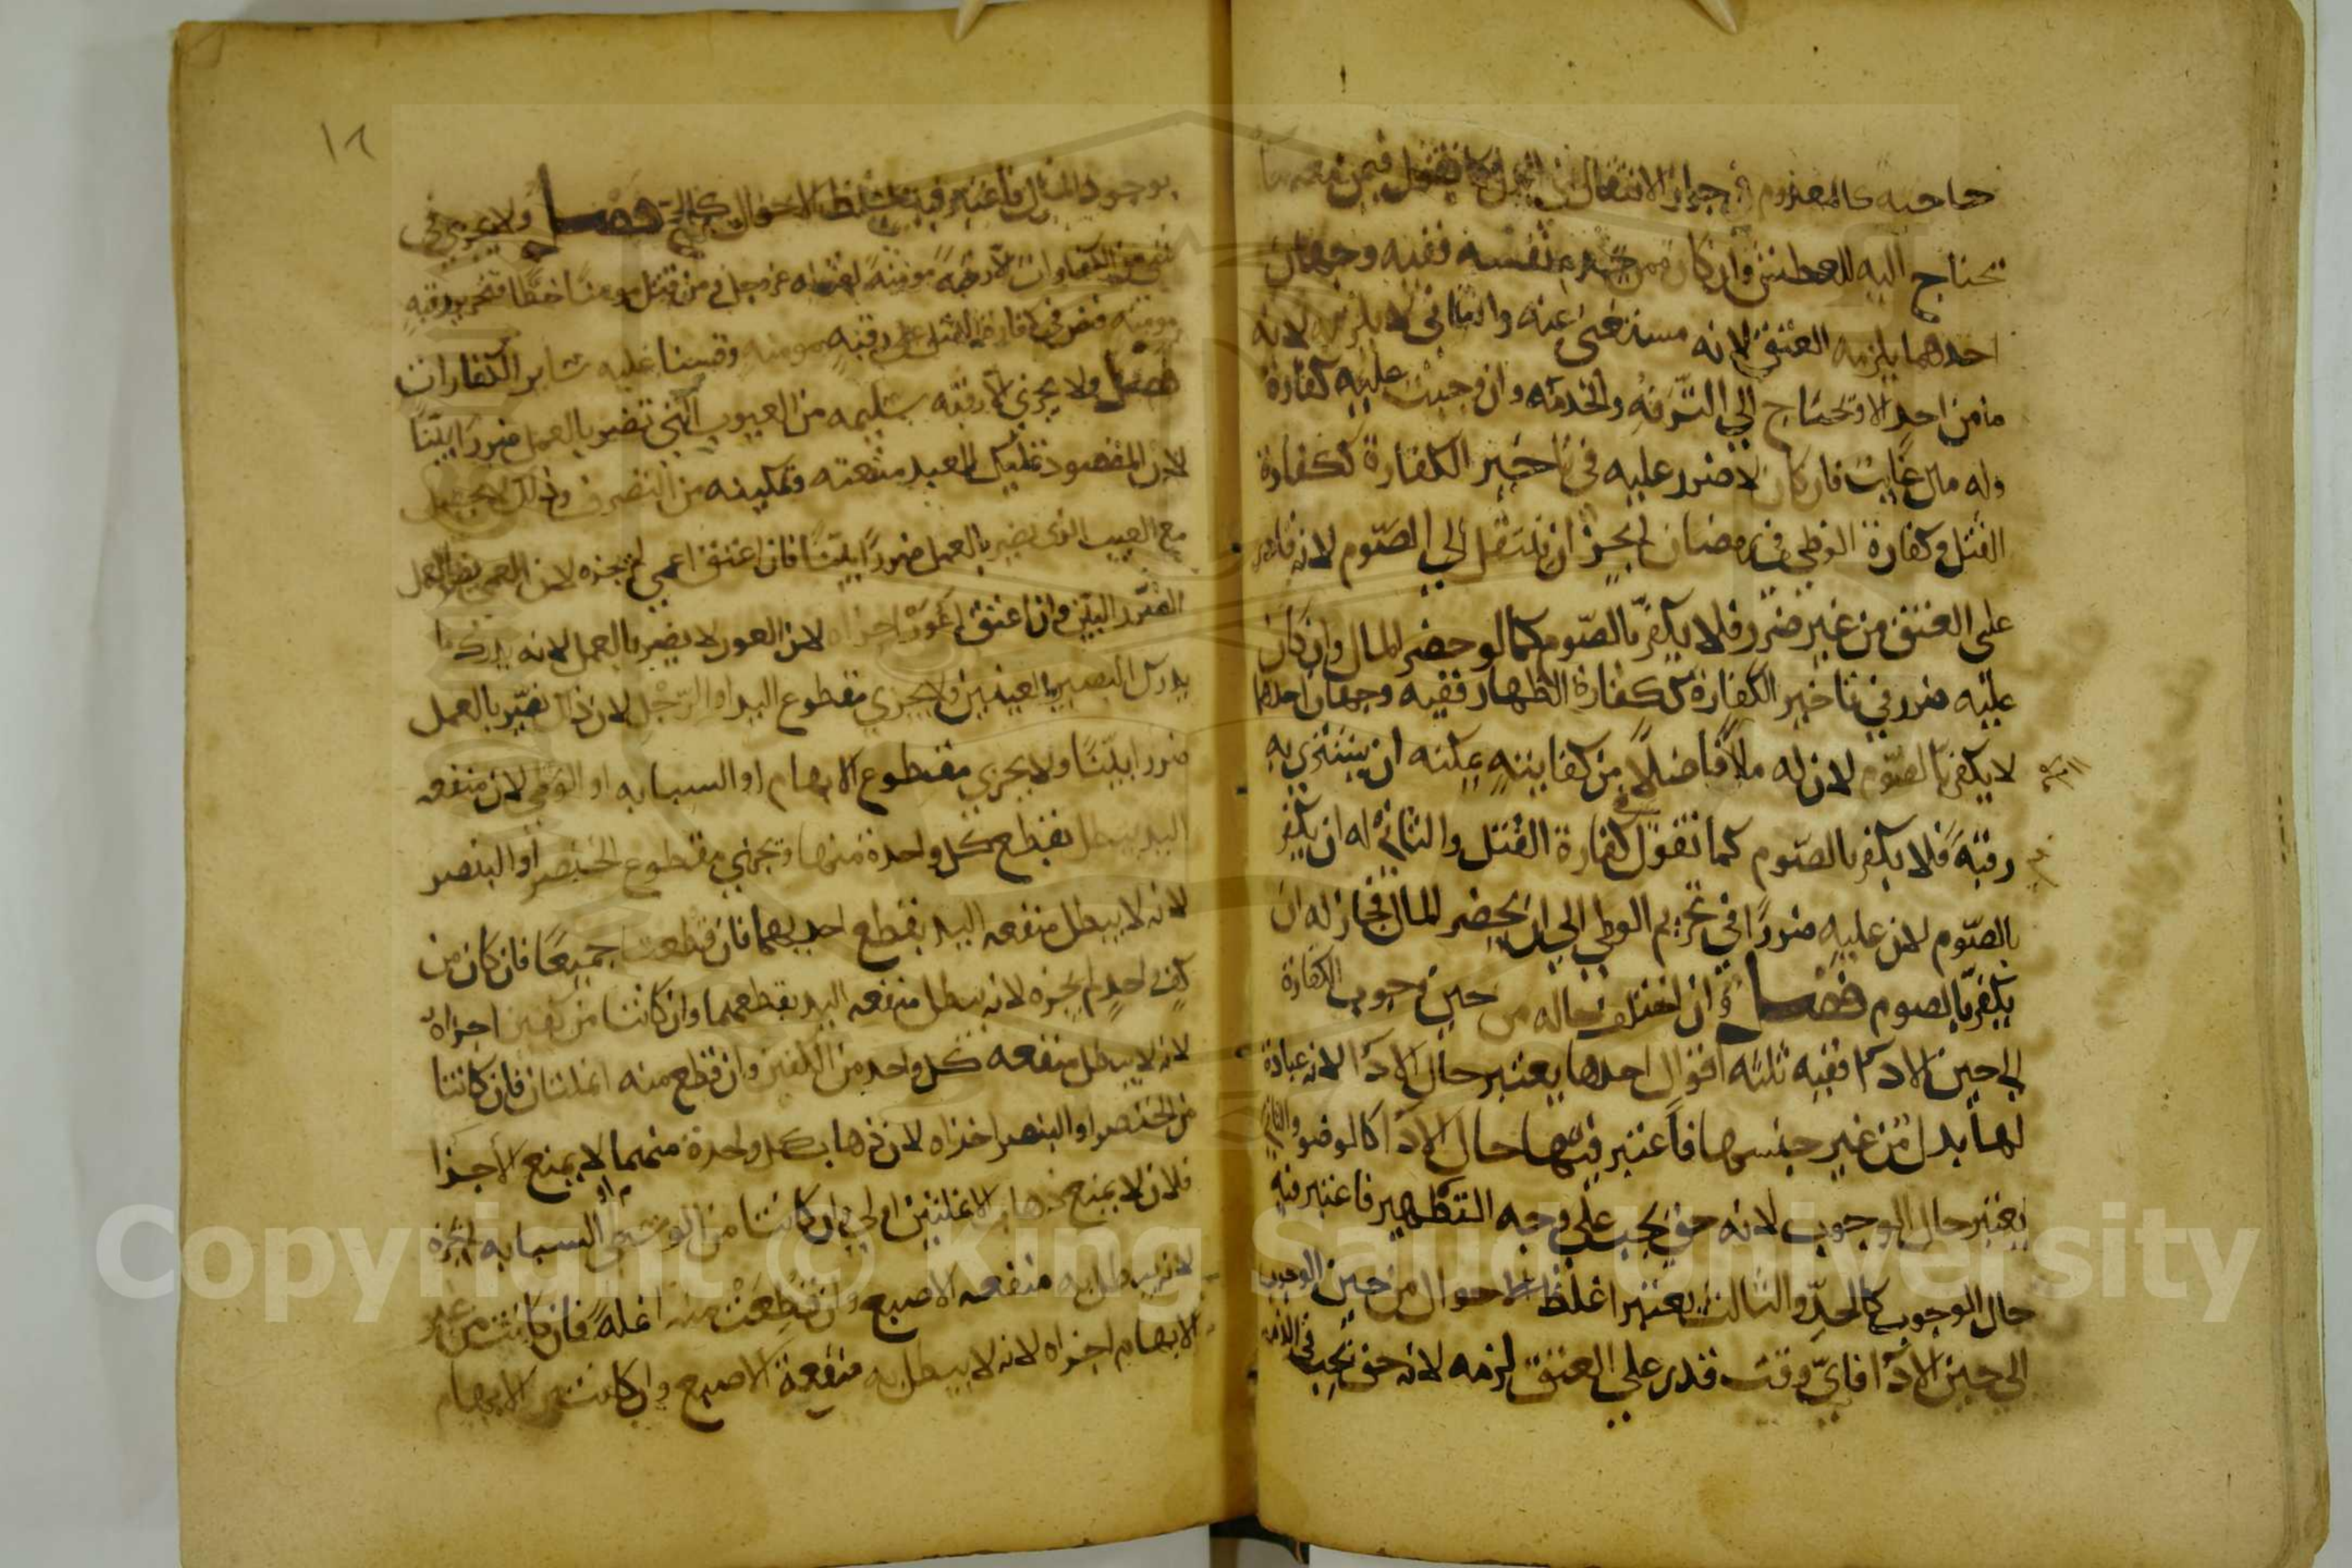 حاجته كالمعدوم في جواز الانتقال الى البدل كما نقول فيمن معه ما
تحتاج اليه للعطش وان كان ممن يخدم نفسه ففيه وجهان
احدهما يلزمه العتق لانه مستغنى عنه والثاني لا يلزمه لانه
ما من احد الا وتحتاج الي الترفه والخدمه وان وجبت عليه كفارة
وله مال غايب فان كان لا ضرر عليه في تاخير الكفارة ككفارة
القتل وكفارة الوطي في رمضان لم يجز ان ينتقل الي الصوم لانه قادر
على العتق من غير ضرر فلا يكفر بالصوم كما لو حضر المال وان كان
عليه ضرر في تاخير الكفارة ككفارة الظهار ففيه وجهان احدهما
لا يكفر بالصوم لان له مالا فاضلا من كفايته يمكنه ان يشترى به
رقبة فلا يكفر بالصوم كما نقول في كفارة القتل والثاني له ان يكفر
بالصوم لان عليه ضررا في تحريم الوطي الي ان يحضر المال فجاز له ان
يكفر بالصوم فصل وان اختلف حاله من حين وجوب الكفارة
الي حين الادا ففيه ثلثه اقوال احدها يعتبر حال الادا لانه عبادة
لها بدل من غير جنسها فاعتبر فيها حال الادا كالوضو والثاني
يعتبر حال الوجوب لانه حق يجب علي وجه التطهير فاعتبر فيه
حال الوجوب كالحد والثالث يعتبر اغلظ الاحوال من حين الوجوب
الي حين الادا فاي وقت قدر علي العتق لزمه لانه حق يجب في الذمه
١٦
بوجود المال فاعتبر فيه اغلظ الاحوال كالحج فصل ولا يجزي في
شي من الكفارات الا رقبة مومنة لقوله عز وجل ومن قتل مومنا خطا فتحرير رقبة
مومنة فنص في كفارة القتل على رقبة مومنه وقسنا عليه ساير الكفارات
فصل ولا يجزي الا رقبه سليمه من العيوب التي تضر بالعمل ضررا بينا
لان المقصود تمليك العبد منفعته وتمكينه من التصرف وذلك لا يحصل
مع العيب الذي يضر بالعمل ضررا بينا فان اعتق اعمي لم يجزه لان العمي يضر بالعمل
الضرر البين وان اعتق اعور اجزاه لان العور لا يضر بالعمل لانه يدرك ما
يدرك البصير بالعينين ولا يجزي مقطوع اليد او الرجل لان ذلك يضر بالعمل
ضررا بينا ولا يجزي مقطوع الابهام او السبابه او الوسطي لان منفعه
اليد يبطل بقطع كل واحدة منها ويجزي مقطوع الخنصر او البنصر
لانه لا يبطل منفعه اليد بقطع احديهما فان قطعتا جميعا فان كان من
كف واحد لم يجزه لانه يبطل منفعه اليد بقطعهما وان كانتا من كفين اجزاه
لانه لا يبطل منفعه كل واحد من الكفين وان قطع منه انملتان فان كانتا
من الخنصر او البنصر اجزاه لان ذهاب كل واحدة منهما لا يمنع الاجزا
فلان لا يمنع ذهاب الانملتين اولي وان كانتا من الوسطي او السبابه لم يجزه
لانه يبطل به منفعه الاصبع وان قطعت منه انملة فان كانت من غير
الابهام اجزاه لانه لا يبطل به منفعة الاصبع وان كانت من الابهام